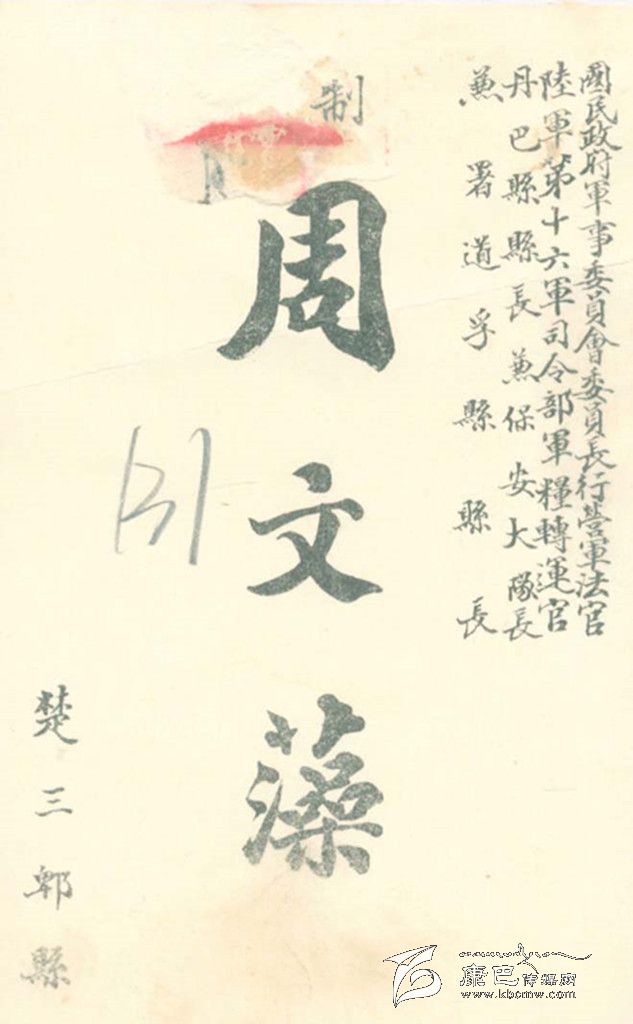 國民政府軍事委員會委員長行營軍法官
陸軍第十六軍司令部軍糧轉運官
丹巴縣縣長兼保安大隊長
兼署道孚縣縣長
制
周文藻
131
楚三郫縣
康巴传媒网
www.kbcmw.com